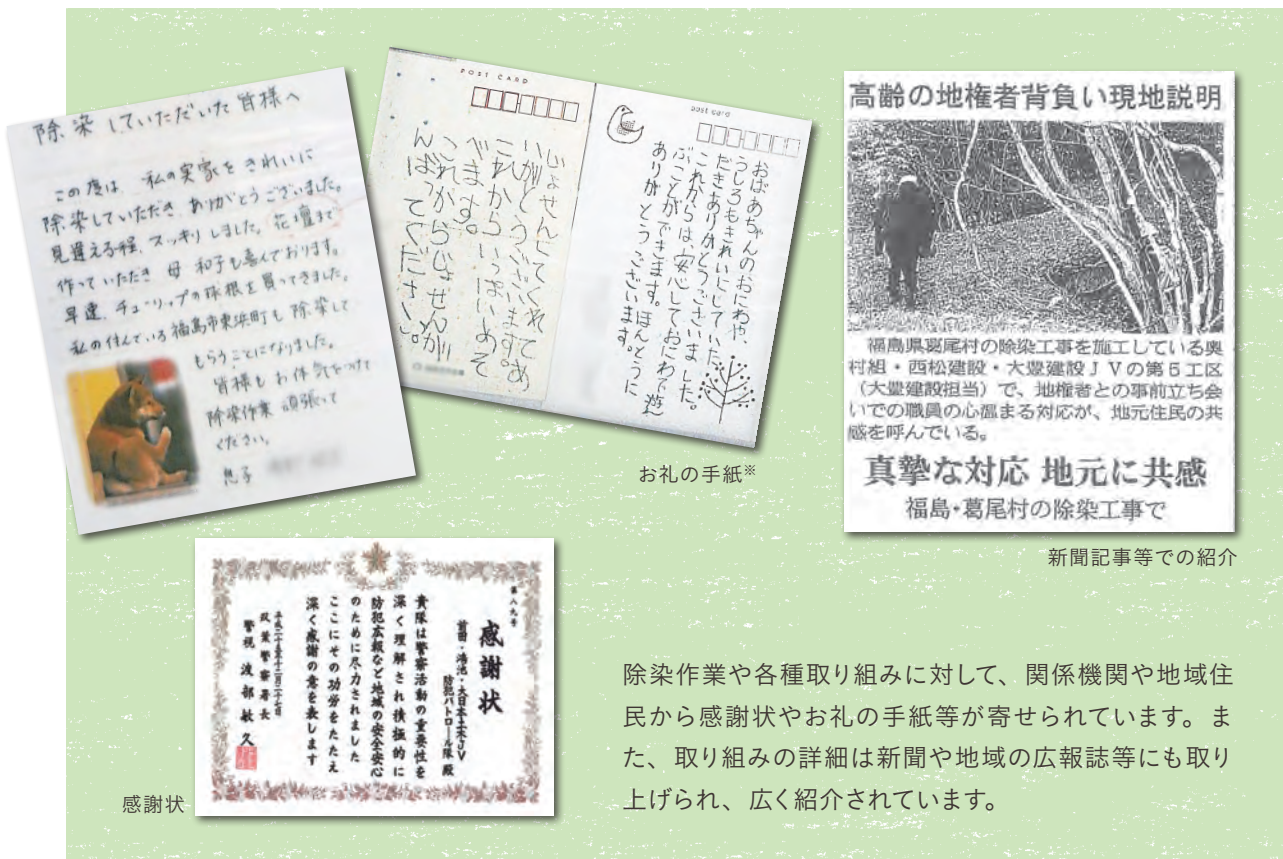 除染していただいた皆様へ
この度は、私の実家をきれいに
除染していただき、ありがとうございました。
見違える程、スッキリしました。花壇まで
作っていただき 母 和子も喜んでおります。
早速、チューリップの球根を買ってきました。
私の住んでいる福島市東浜町も除染して
もらうことになりました。
皆様もお体気をつけて
除染作業 頑張って
ください。
息子
POST CARD
じょせんしてくれてあ
りがとうございます。
これからいっぱいあそ
べます。
これからもじょせんが
んばってください。
post card
おばあちゃんのおにわや、
うしろもきれいにしていた
だきありがとうございました。
これからは、安心しておにわで遊
ぶことができます。ほんとうに
ありがとうございます。
お礼の手紙※
高齢の地権者背負い現地説明
福島県葛尾村の除染工事を施工している奥
村組・西松建設・大豊建設JVの第5工区
(大豊建設担当)で、地権者との事前立ち会
いでの職員の心温まる対応が、地元住民の共
感を呼んでいる。
真摯な対応 地元に共感
福島・葛尾村の除染工事で
新聞記事等での紹介
第八九号
感謝状
前田・鴻池・大日本土木JV
防犯パトロール隊 殿
貴隊は警察活動の重要性を
深く理解され積極的に
防犯広報など地域の安全安心
のために尽力されました
ここにその功労をたたえ
深く感謝の意を表します
平成二十五年十二月二十七日
双葉警察署長
警視 渡部敏久
感謝状
除染作業や各種取り組みに対して、関係機関や地域住
民から感謝状やお礼の手紙等が寄せられています。ま
た、取り組みの詳細は新聞や地域の広報誌等にも取り
上げられ、広く紹介されています。